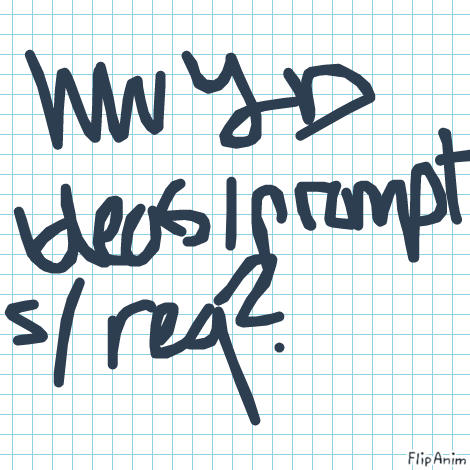 WWYD
Ideas/prompt
s/req?
FlipAnim